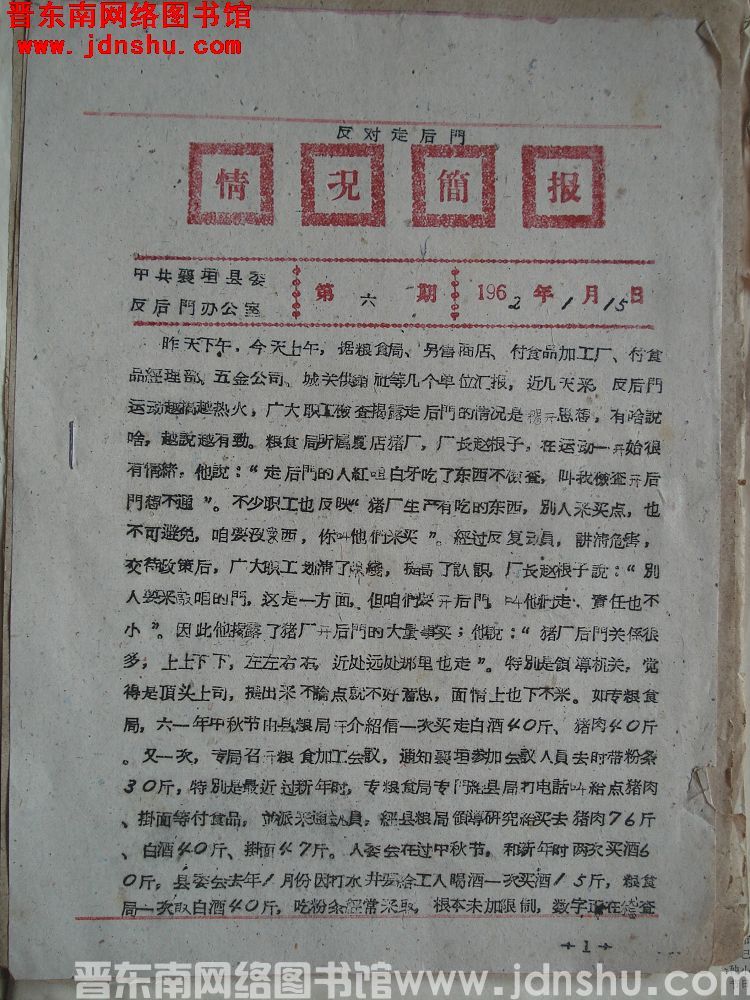 晋东南网络图书馆
www.jdnshu.com
反对走后門
情况簡报
中共襄垣县委
反后門办公室
第六期
1962年1月15日
昨天下午、今天上午，据粮食局、另售商店、付食品加工厂、付食
品經理部、五金公司、城关供銷社等几个单位汇报，近几天来，反后門
运动越搞越热火，广大职工检查揭露走后門的情况是開思想，有啥說
啥，越説越有劲。粮食局所属夏店猪厂，厂长赵根子，在运动一开始很
有情緒，他說：“走后門的人紅咀白牙吃了东西不检查，叫我检查开后
門想不通”。不少职工也反映“猪厂生产有吃的东西，别人来买点，也
不可避免，咱要没東西，你叫他們来买”。經过反复动員，講清危害，
交待政策后，广大职工划清了界綫，提高了認識，厂长赵根子說：“别
人要来敲咱的門，这是一方面，但咱們要开后門，叫他們走，責任也不
小”。因此他揭露了猪厂开后門的大量事实；他說：“猪厂后門关係很
多，上上下下，左左右右，近处远处那里也走”。特别是領導机关，覚
得是頂头上司，提出来不給点就不好意思，面情上也下不来。如专粮食
局，六一年中秋节由县粮局开介紹信一次买走白酒40斤、猪肉40斤
。又一次，专局召开粮食加工会議，通知襄垣参加会議人員去时带粉条
30斤，特别是最近过新年时，专粮食局专門給县局打电話叫給点猪肉
、掛面等付食品，並派来通訊員，經县粮局領導研究給买去猪肉76斤
、白酒40斤、掛面47斤。人委会在过中秋节，和新年时两次买酒6
0斤，县委会去年1月份因打水井要給工人喝酒一次买酒15斤，粮食
局一次取白酒40斤，吃粉条經常来取，根本未加限制，数字正在檢查
1
晋东南网络图书馆 www.jdnshu.com